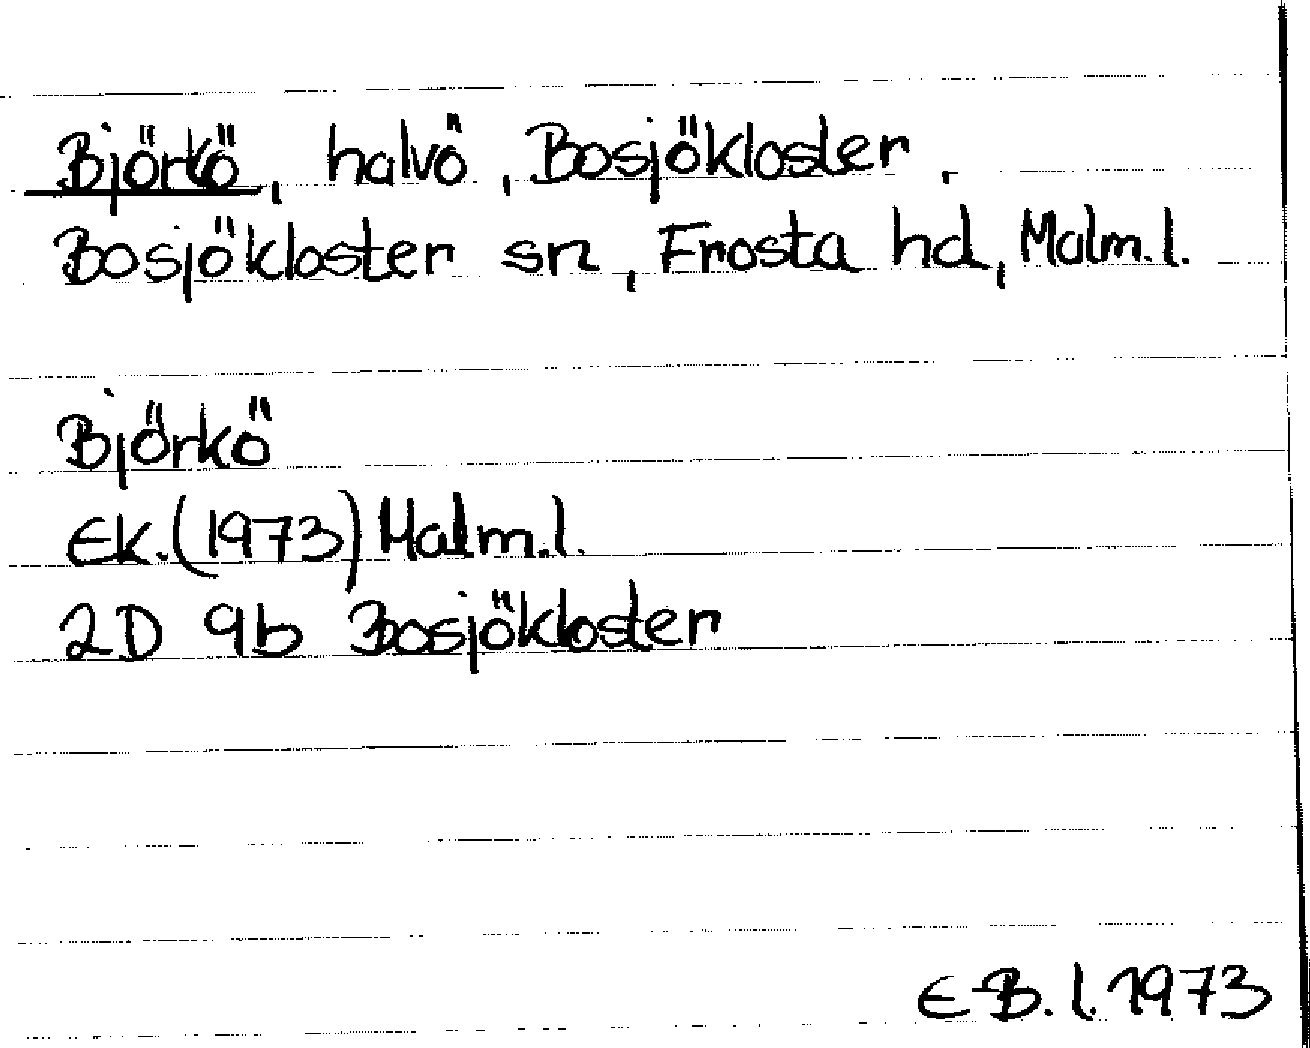 Björkö, halvö, Bosjökloster,
Bosjökloster sn, Frosta hd, Malm.l.
Björkö
Ek.(1973) Malm.l.
2D 9b Bosjökloster
E B. l. 1973